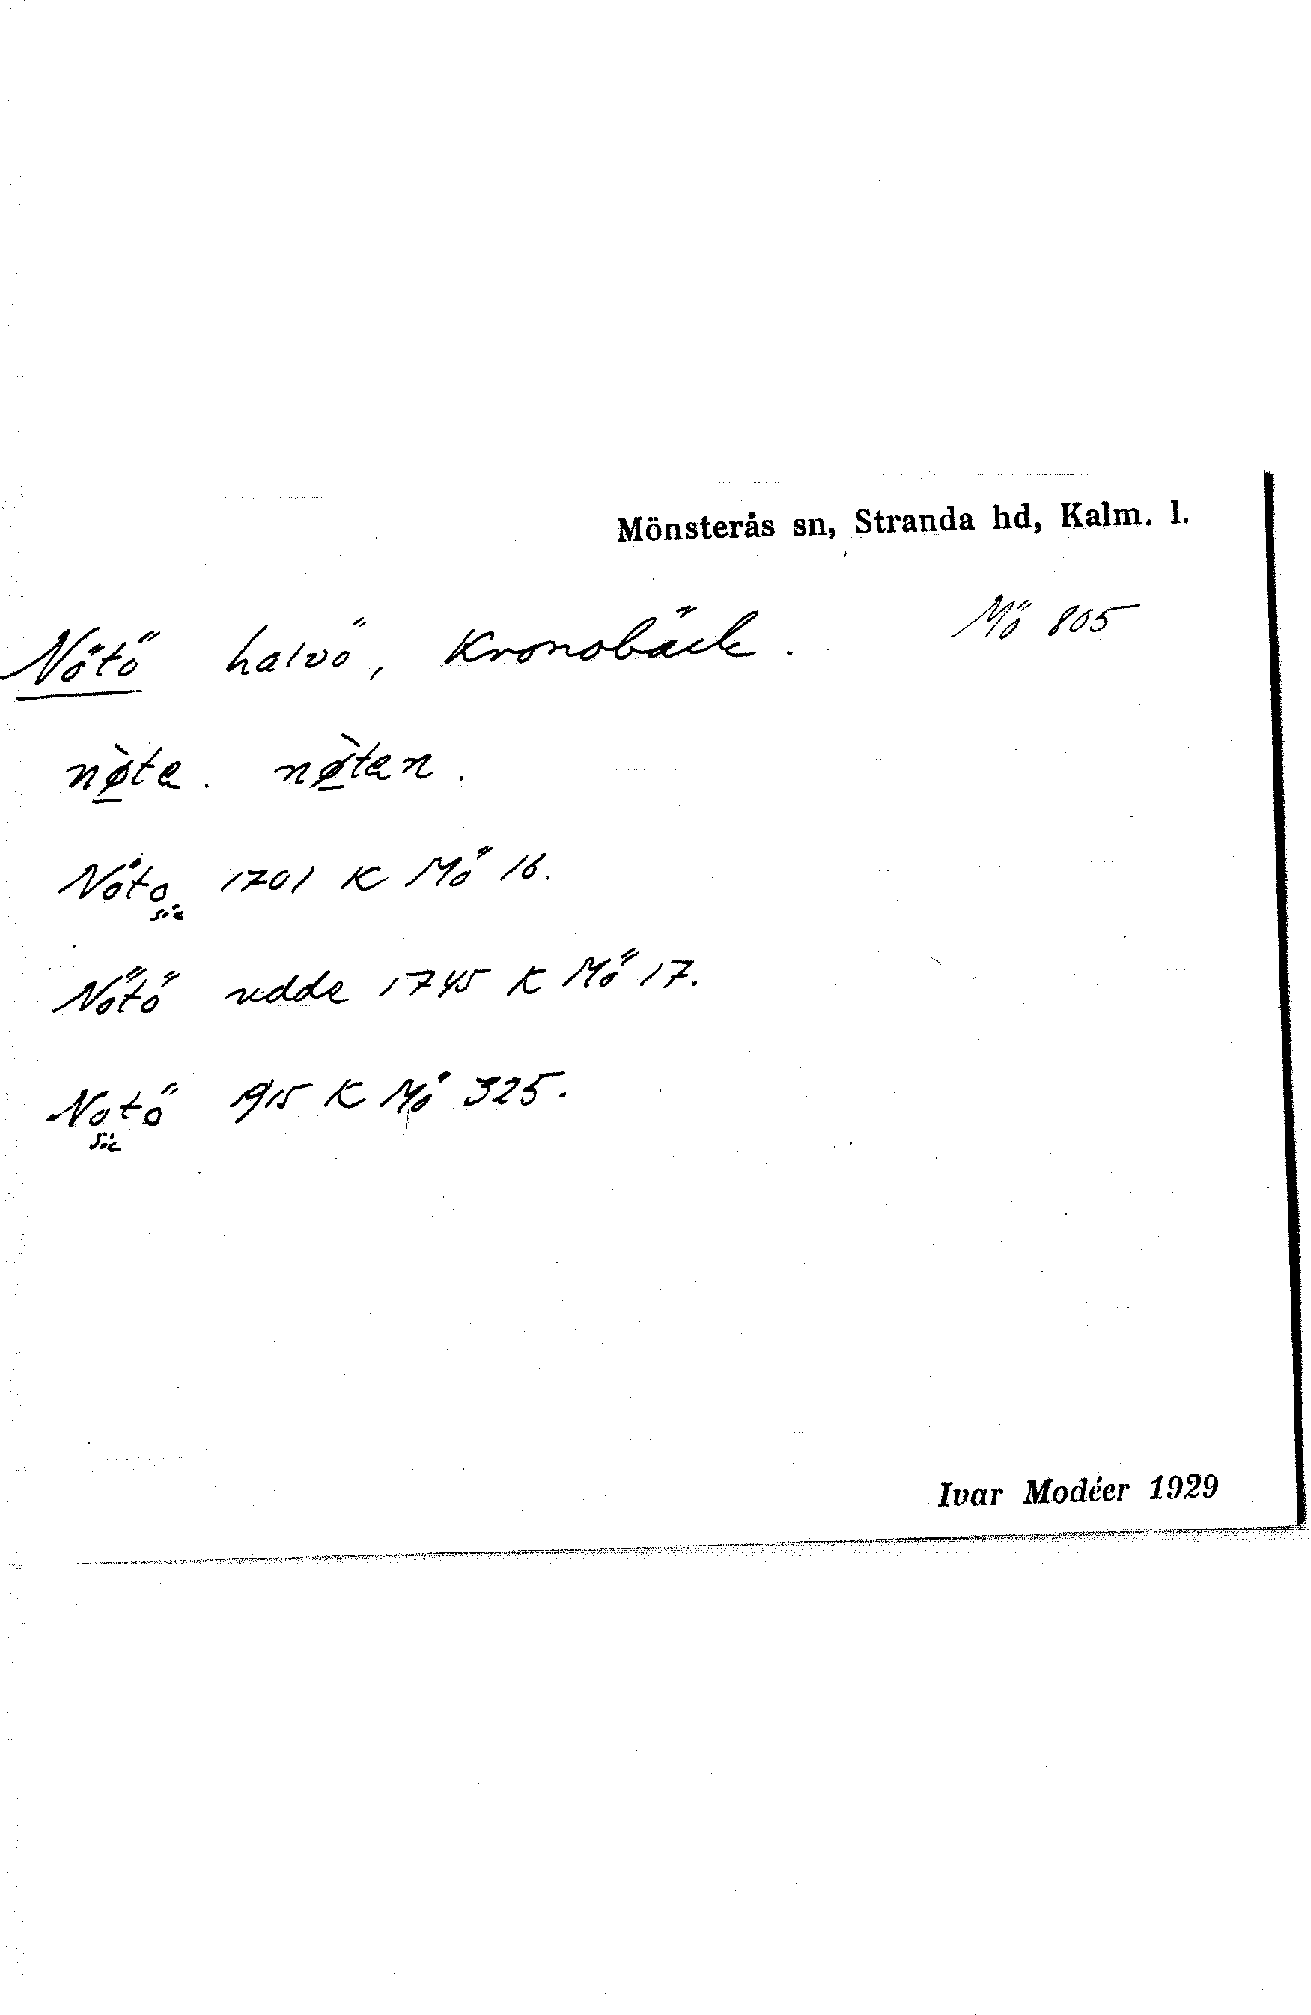 Mönsterås sn, Stranda hd, Kalm. l.
Nötö halvö, Kronobäck. Mö 805
nø̀ta. nø̀tan.
Nöto 1701 K Mö 16.
sic
Nötö udde 1745 K Mö 17.
Notö 1915 K Mö 325.
sic
Ivar Modéer 1929